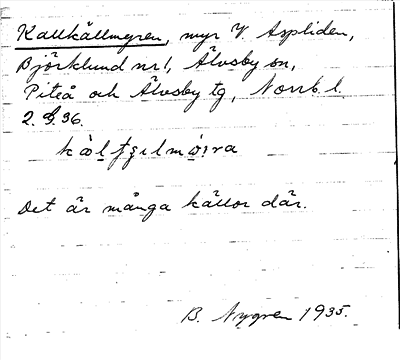 Kallkällmyren, myr V. Aspliden,
Björklund nr 1, Älvsby sn,
Piteå och Älvsby tg, Norrb. l.
2. 9. 36.
Det är många källor där.
B. Nygren 1935.